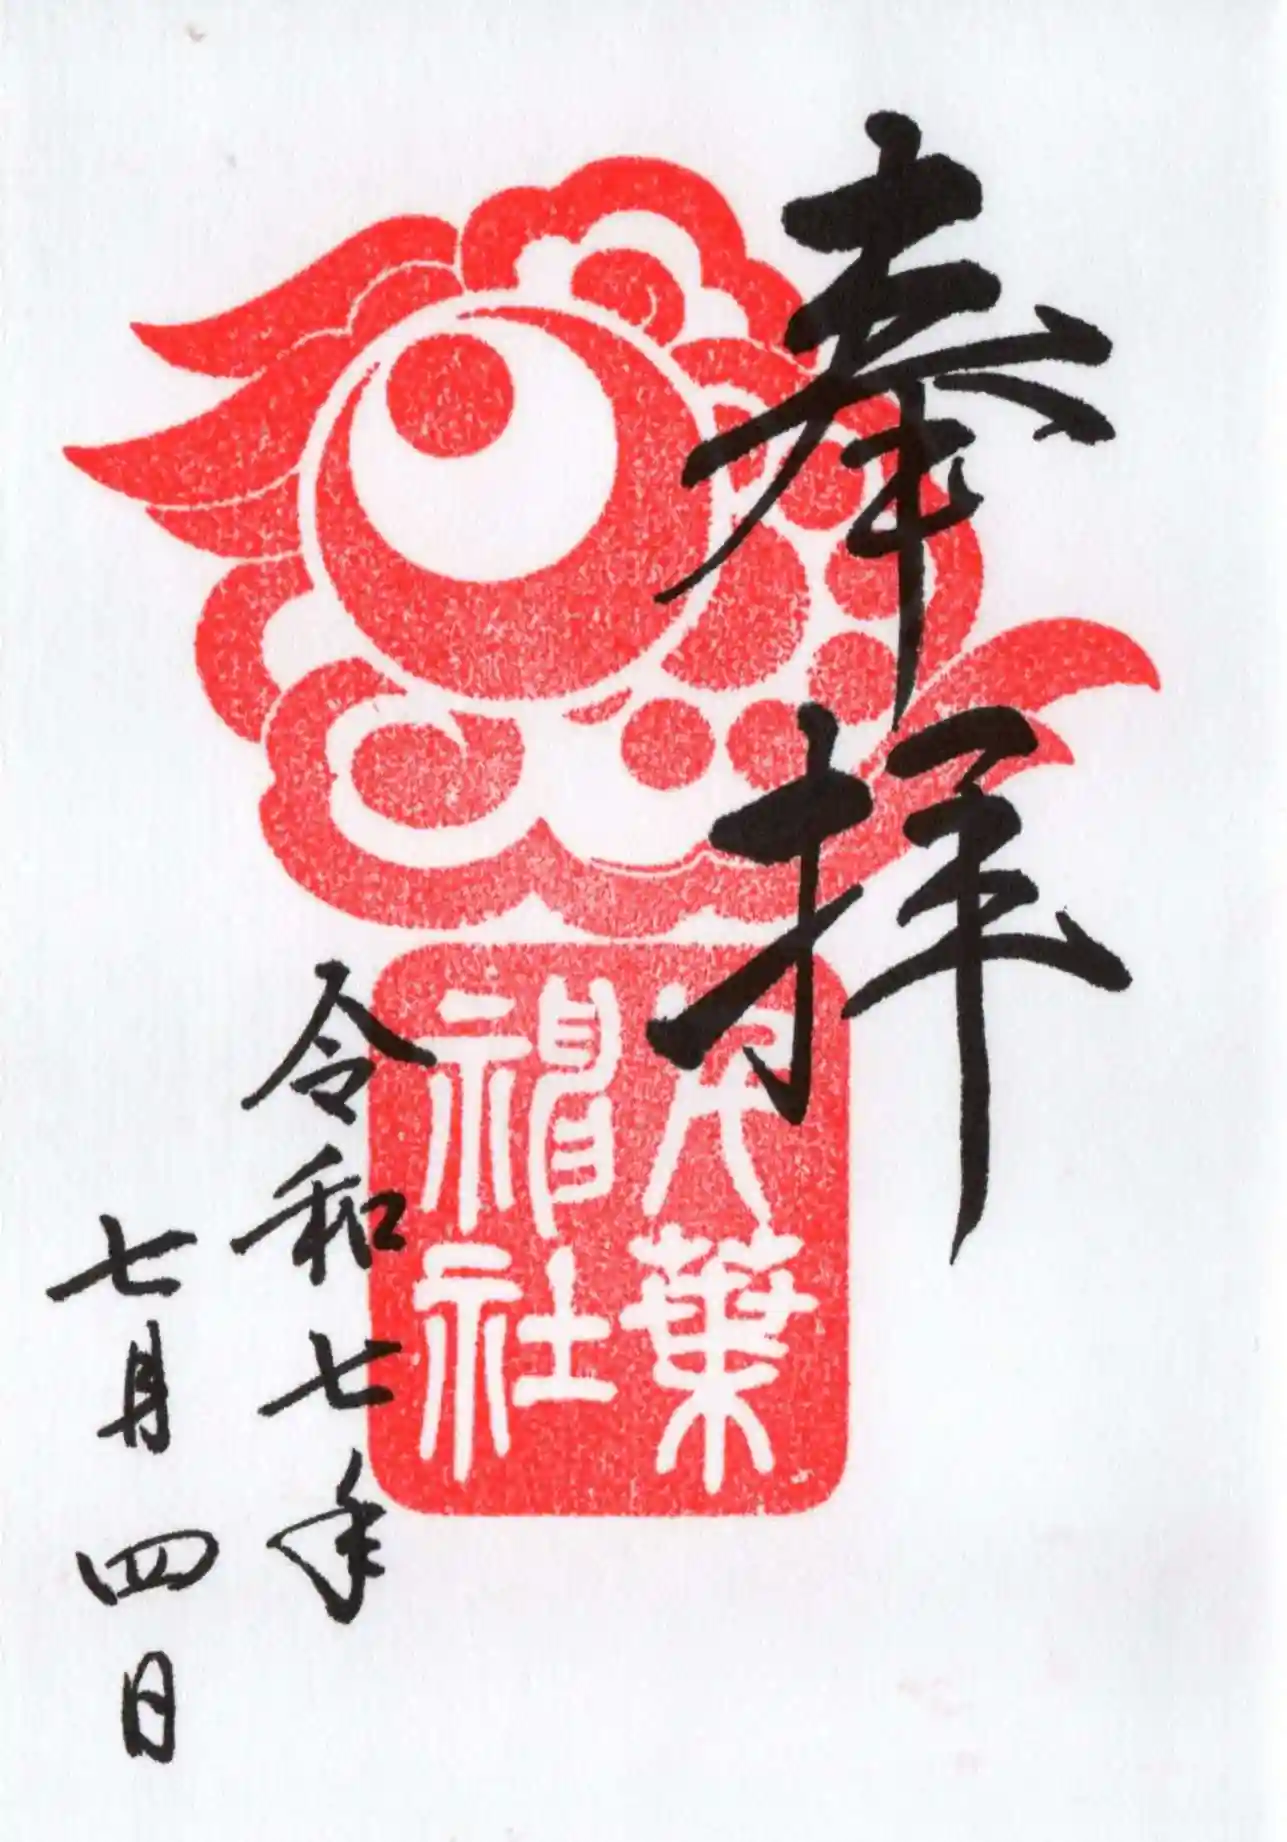 奉拝
葉
神社
令和七年
七月四日